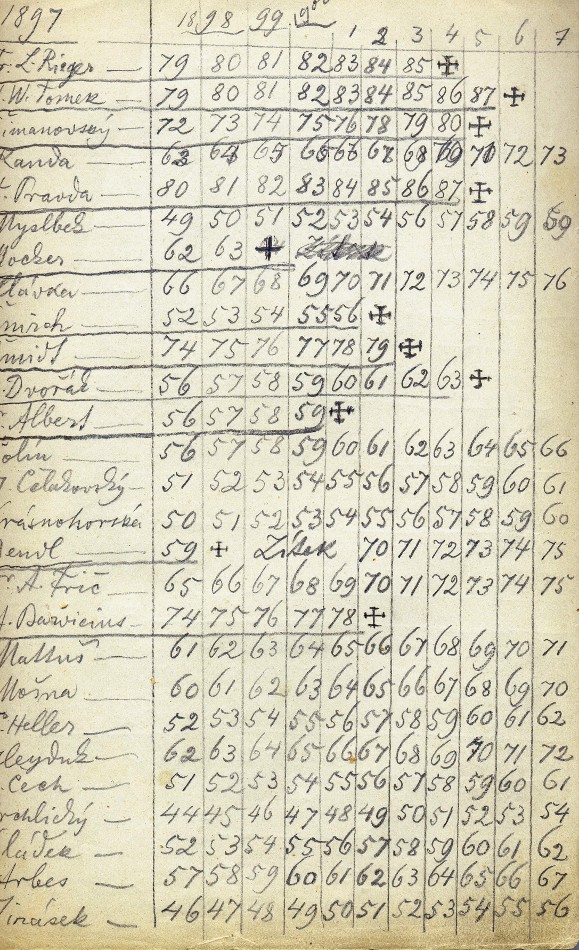 1897 1898 99 1900 1 2 3 4 5 6 7
r. L. Rieger 79 80 81 82 83 84 85 ✠
. W. Tomek 79 80 81 82 83 84 85 86 87 ✠
imanovský 72 73 74 75 76 78 79 80 ✠
Randa 63 64 65 66 67 68 69 70 71 72 73
. Pravda 80 81 82 83 84 85 86 87 ✠
Myslbek 49 50 51 52 53 54 56 57 58 59 59
Mocker 62 63 ✝
lávka 66 67 68 69 70 71 72 73 74 75 76
nirch 52 53 54 55 56 ✠
midt 74 75 76 77 78 79 ✠
. Dvořák 56 57 58 59 60 61 62 63 ✠
. Albert 56 57 58 59 ✠
olin 56 57 58 59 60 61 62 63 64 65 66
. Čelakovský 51 52 53 54 55 56 57 58 59 60 61
rásnohorská 50 51 52 53 54 55 56 57 58 59 60
endl 59 ✠ Zítek 70 71 72 73 74 75
r. A. Frič 65 66 67 68 69 70 71 72 73 74 75
74 75 76 77 78 ✠
Mattuš 61 62 63 64 65 66 67 68 69 70 71
Mošna 60 61 62 63 64 65 66 67 68 69 70
. Heller 52 53 54 55 56 57 58 59 60 61 62
leyduk 62 63 64 65 66 67 68 69 70 71 72
. Čech 51 52 53 54 55 56 57 58 59 60 61
rchlický 44 45 46 47 48 49 50 51 52 53 54
ládek 52 53 54 55 56 57 58 59 60 61 62
Arbes 57 58 59 60 61 62 63 64 65 66 67
Jirásek 46 47 48 49 50 51 52 53 54 55 56